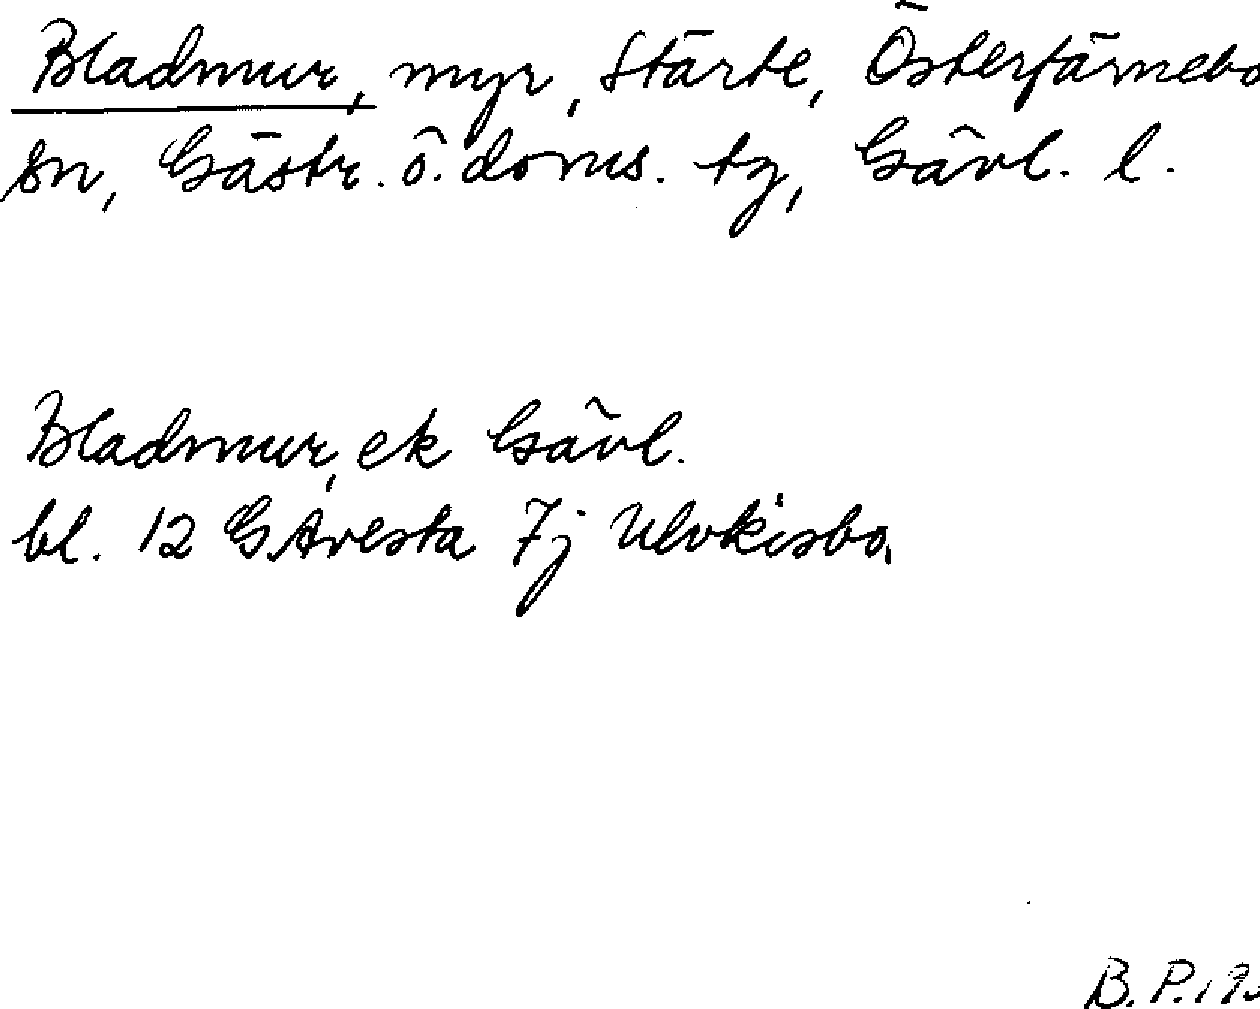 Bladmur, myr, Stärte, Österfärnebo
sn, Gästr. ö. doms. tg, Gävl. l.
Bladmur, ek Gävl.
bl. 12 G Avesta 7j Ulvkisbo,
B. P. 19